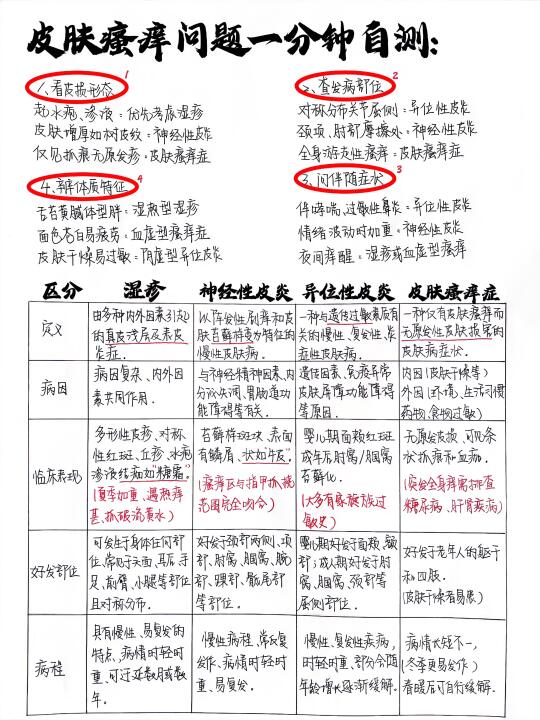 皮肤瘙痒问题一分钟自测:
1、看皮损形态 1
起水疱、渗液:优先考虑湿疹
皮肤增厚如树皮纹:神经性皮炎
仅见抓痕无原发疹:皮肤瘙痒症
2、查发病部位 2
对称分布关节屈侧:异位性皮炎
颈项、肘部摩擦处:神经性皮炎
全身游走性瘙痒:皮肤瘙痒症
4、辨体质特征 4
舌苔黄腻体型胖:湿热型湿疹
面色苍白易疲劳:血虚型瘙痒症
皮肤干燥易过敏:阴虚型异位皮炎
3、问伴随症状 3
伴哮喘,过敏性鼻炎:异位性皮炎
情绪波动时加重:神经性皮炎
夜间痒醒:湿疹或血虚型瘙痒
区分 湿疹 神经性皮炎 异位性皮炎 皮肤瘙痒症
定义
由多种内外因素引起
的真皮浅层及表皮
炎症.
以阵发性剧痒和皮
肤苔藓样变为特征的
慢性皮肤病.
一种与遗传过敏素质有
关的慢性、复发性、炎
症性皮肤病.
一种仅有皮肤瘙痒而
无原发性皮肤损害的
皮肤病症状.
病因
病因复杂、内外因
素共同作用.
与神经精神因素、内
分泌失调、胃肠道功
能障碍等有关.
遗传因素、免疫异常
皮肤屏障功能障碍
等原因.
内因(皮肤干燥等)
外因(环境、生活习惯
药物、食物过敏)
临床表现
多形性皮疹、对称
性红斑、丘疹、水疱
渗液结痂如糖霜.
(夏季加重、遇热痒
甚、抓破流黄水)
苔藓样斑块、表面
有鳞屑、状如牛皮.
(瘙痒区与指甲抓挠
范围完全吻合)
婴儿期面颊红斑
成年后肘窝/腘窝
苔藓化.
(大多有家族过
敏史)
无原发皮损、可见条
状抓痕和血痂.
(突发全身瘙痒排查
糖尿病、肝肾疾病)
好发部位
可发生于身体任何部
位、常见于头面、耳后、手
足、前臂、小腿等部位
且对称分布.
好发于颈部两侧、项
部、肘窝、腘窝、腕
部、踝部、骶尾部
等部位.
婴儿期好发于面颊、额
部;成人期好发于肘
窝、腘窝、颈部等
屈侧部位.
好发于老年人的躯干
和四肢.
(皮肤干燥者易患)
病程
具有慢性、易复发的
特点、病情时轻时
重、可迁延数月或数
年.
慢性病程、常反复
发作、病情时轻时
重、易复发.
慢性、复发性疾病,
时轻时重、部分会随
年龄增长逐渐缓解.
病情长短不一,
(冬季更易发作)
春暖后可自行缓解.